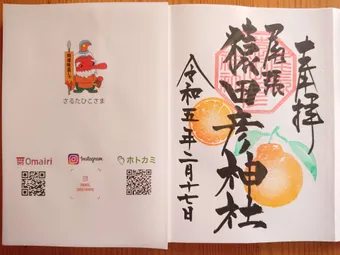 さるたひこさま
Omairi
Instagram
ホトカミ
奉拝
尾張
猿田彦神社
令和五年二月十七日